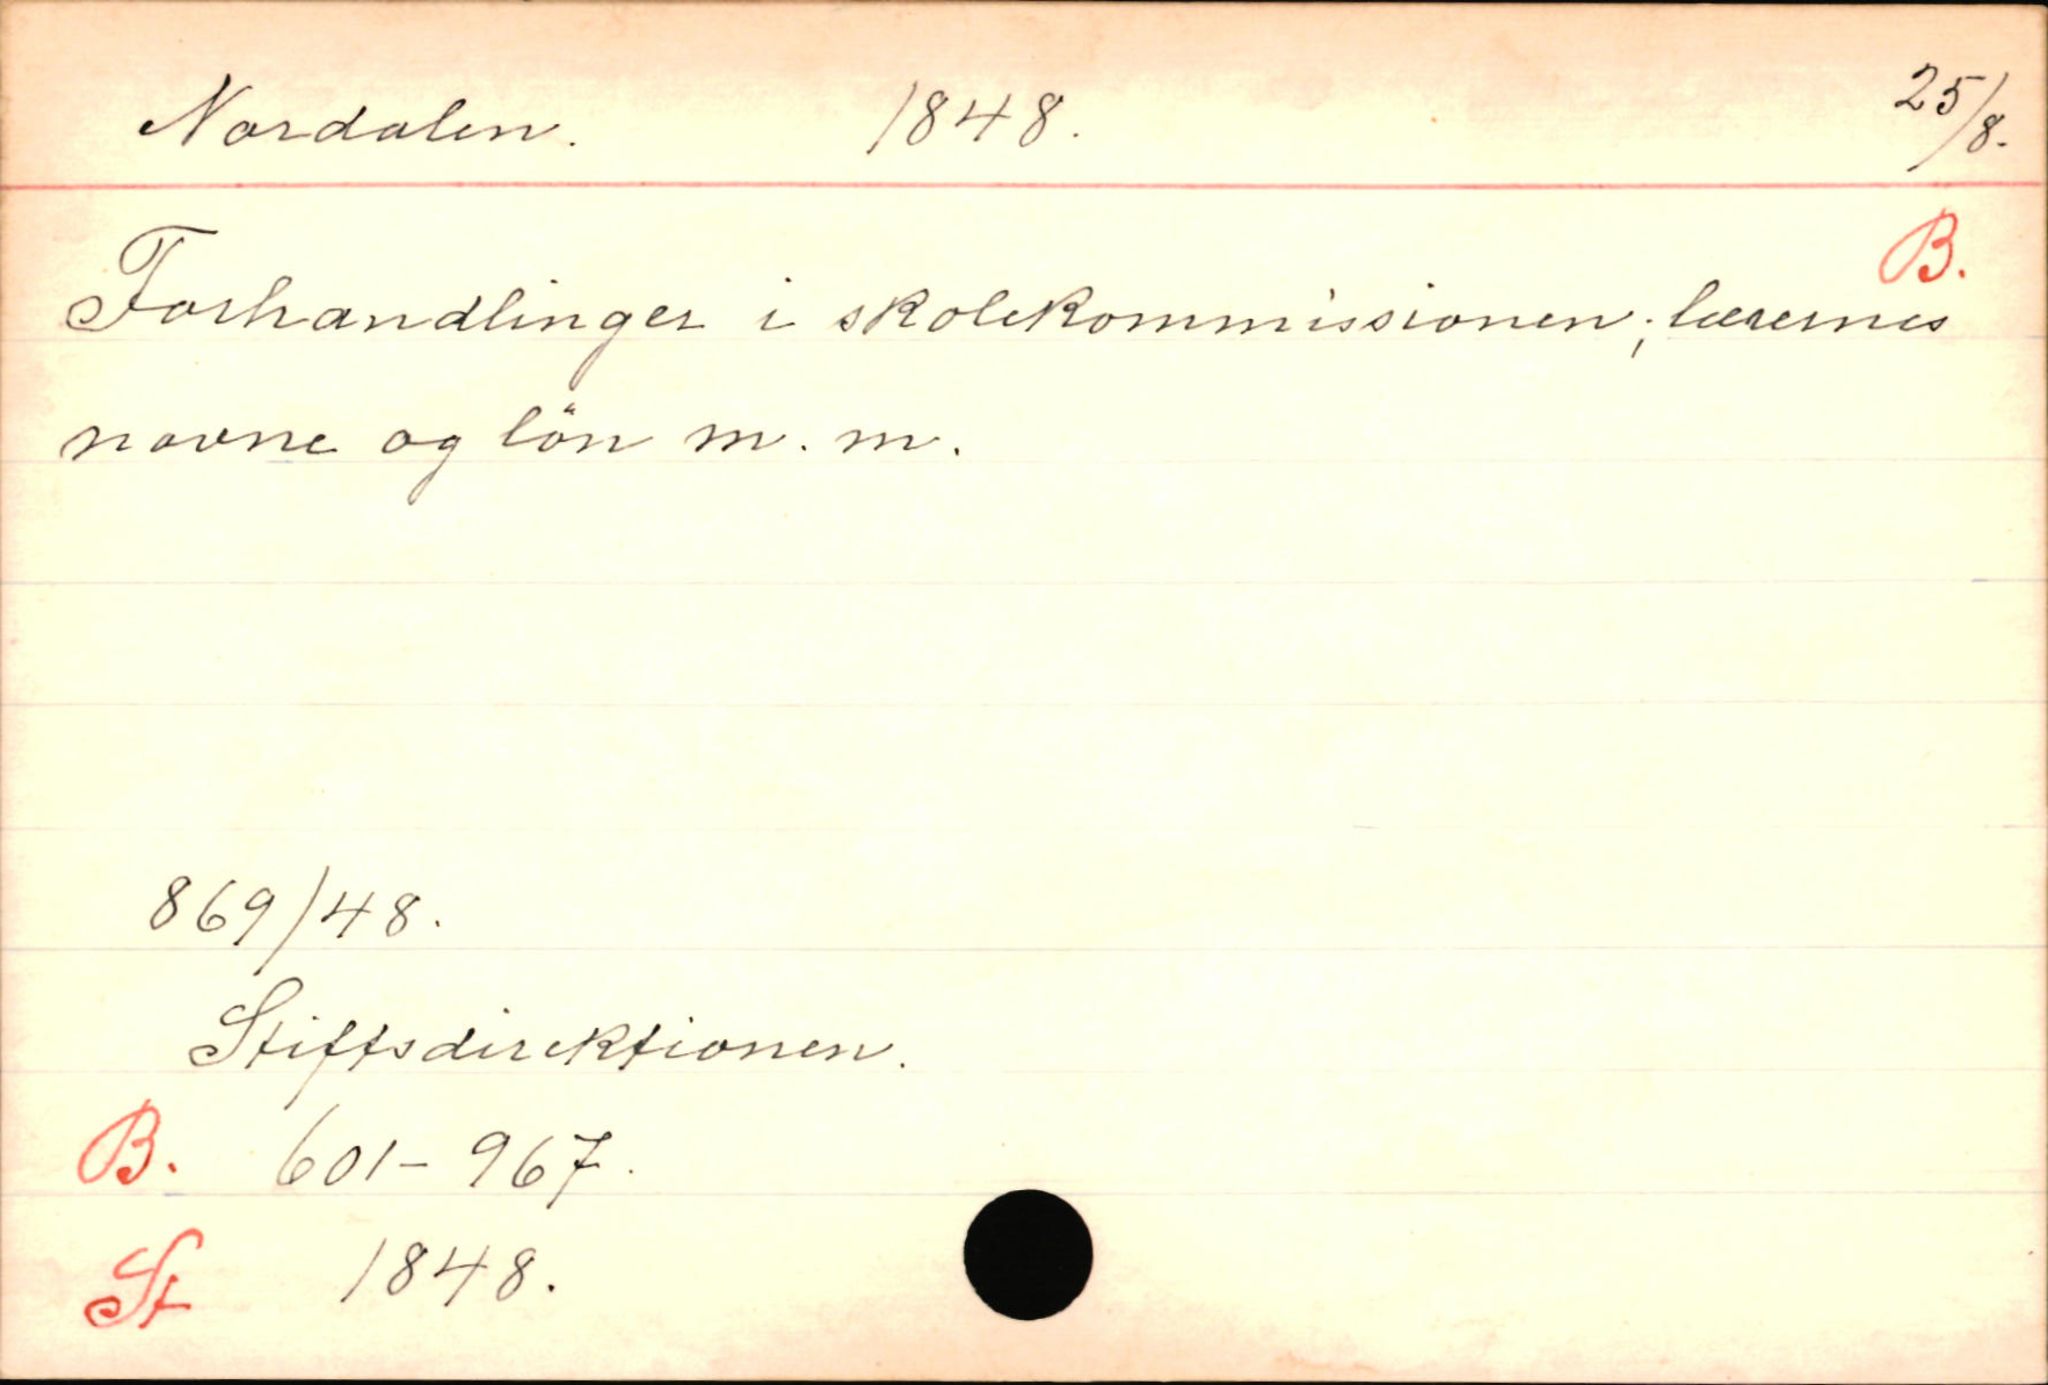 Nordalen. 1848. 25/8.
B.
Forhandlinger i skolekommissionen; lærernes
navne og lön m. m.
869/48.
Stiftsdirektionen.
B. 601-967.
St 1848.